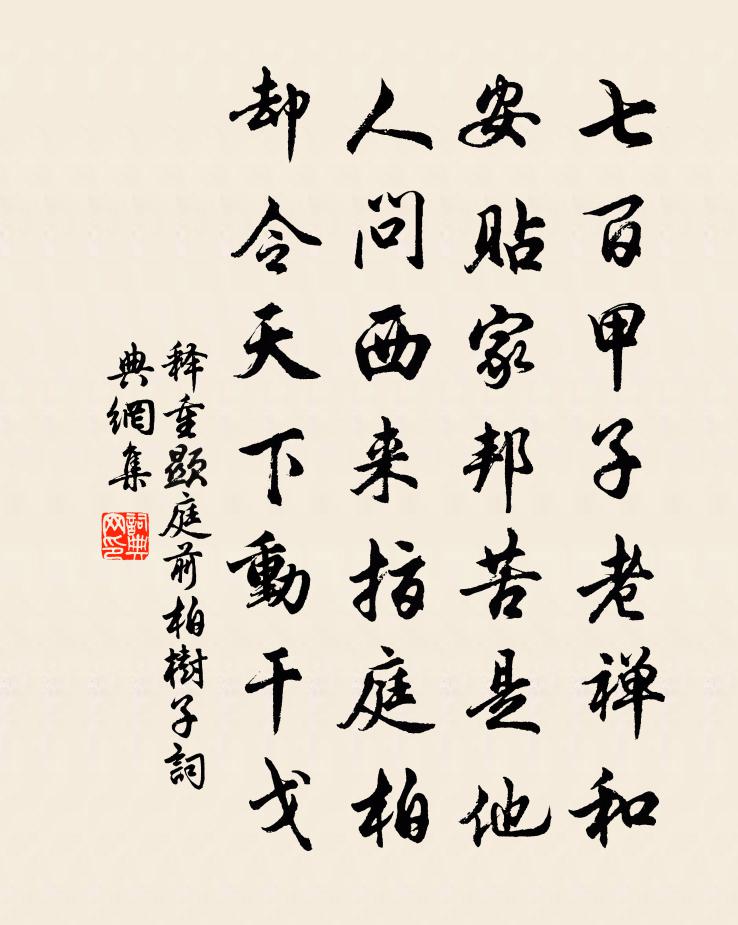 七百甲子老禅和
安贴家邦苦是他
人问西来指庭柏
却令天下動干戈
释重顯庭前柏樹子詞
典網集
詞典網印